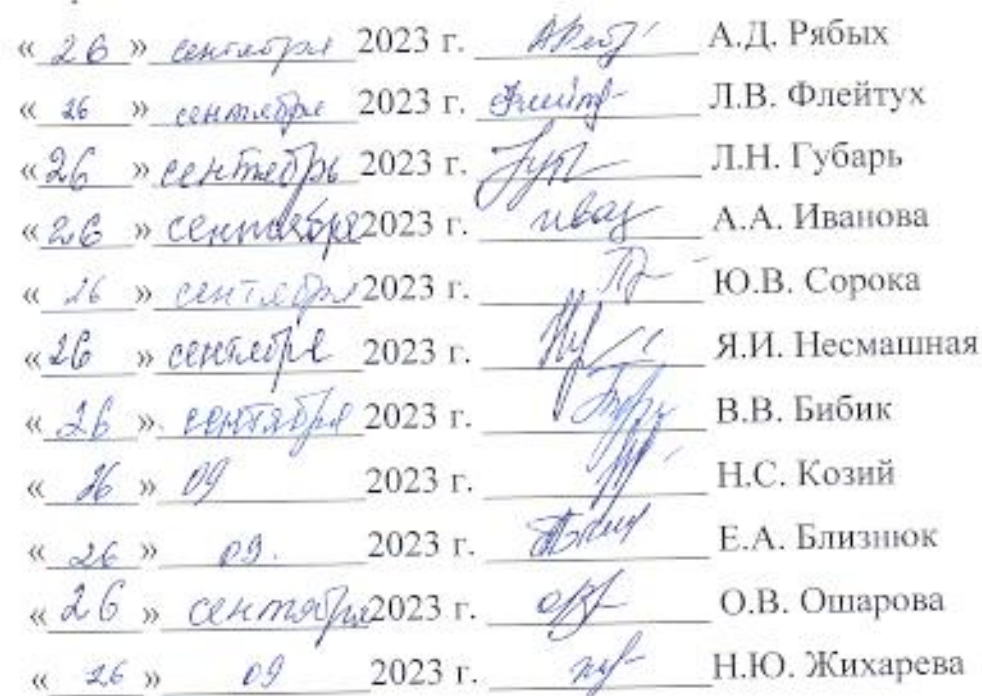 « 26 » сентября 2023 г. А.Д. Рябых
« 26 » сентября 2023 г. Л.В. Флейтух
« 26 » сентябрь 2023 г. Л.Н. Губарь
« 26 » сентября 2023 г. А.А. Иванова
« 26 » сентября 2023 г. Ю.В. Сорока
« 26 » сентября 2023 г. Я.И. Несмашная
« 26 » сентября 2023 г. В.В. Бибик
« 26 » 09 2023 г. Н.С. Козий
« 26 » 09. 2023 г. Е.А. Близнюк
« 26 » сентября 2023 г. О.В. Ошарова
« 26 » 09 2023 г. Н.Ю. Жихарева